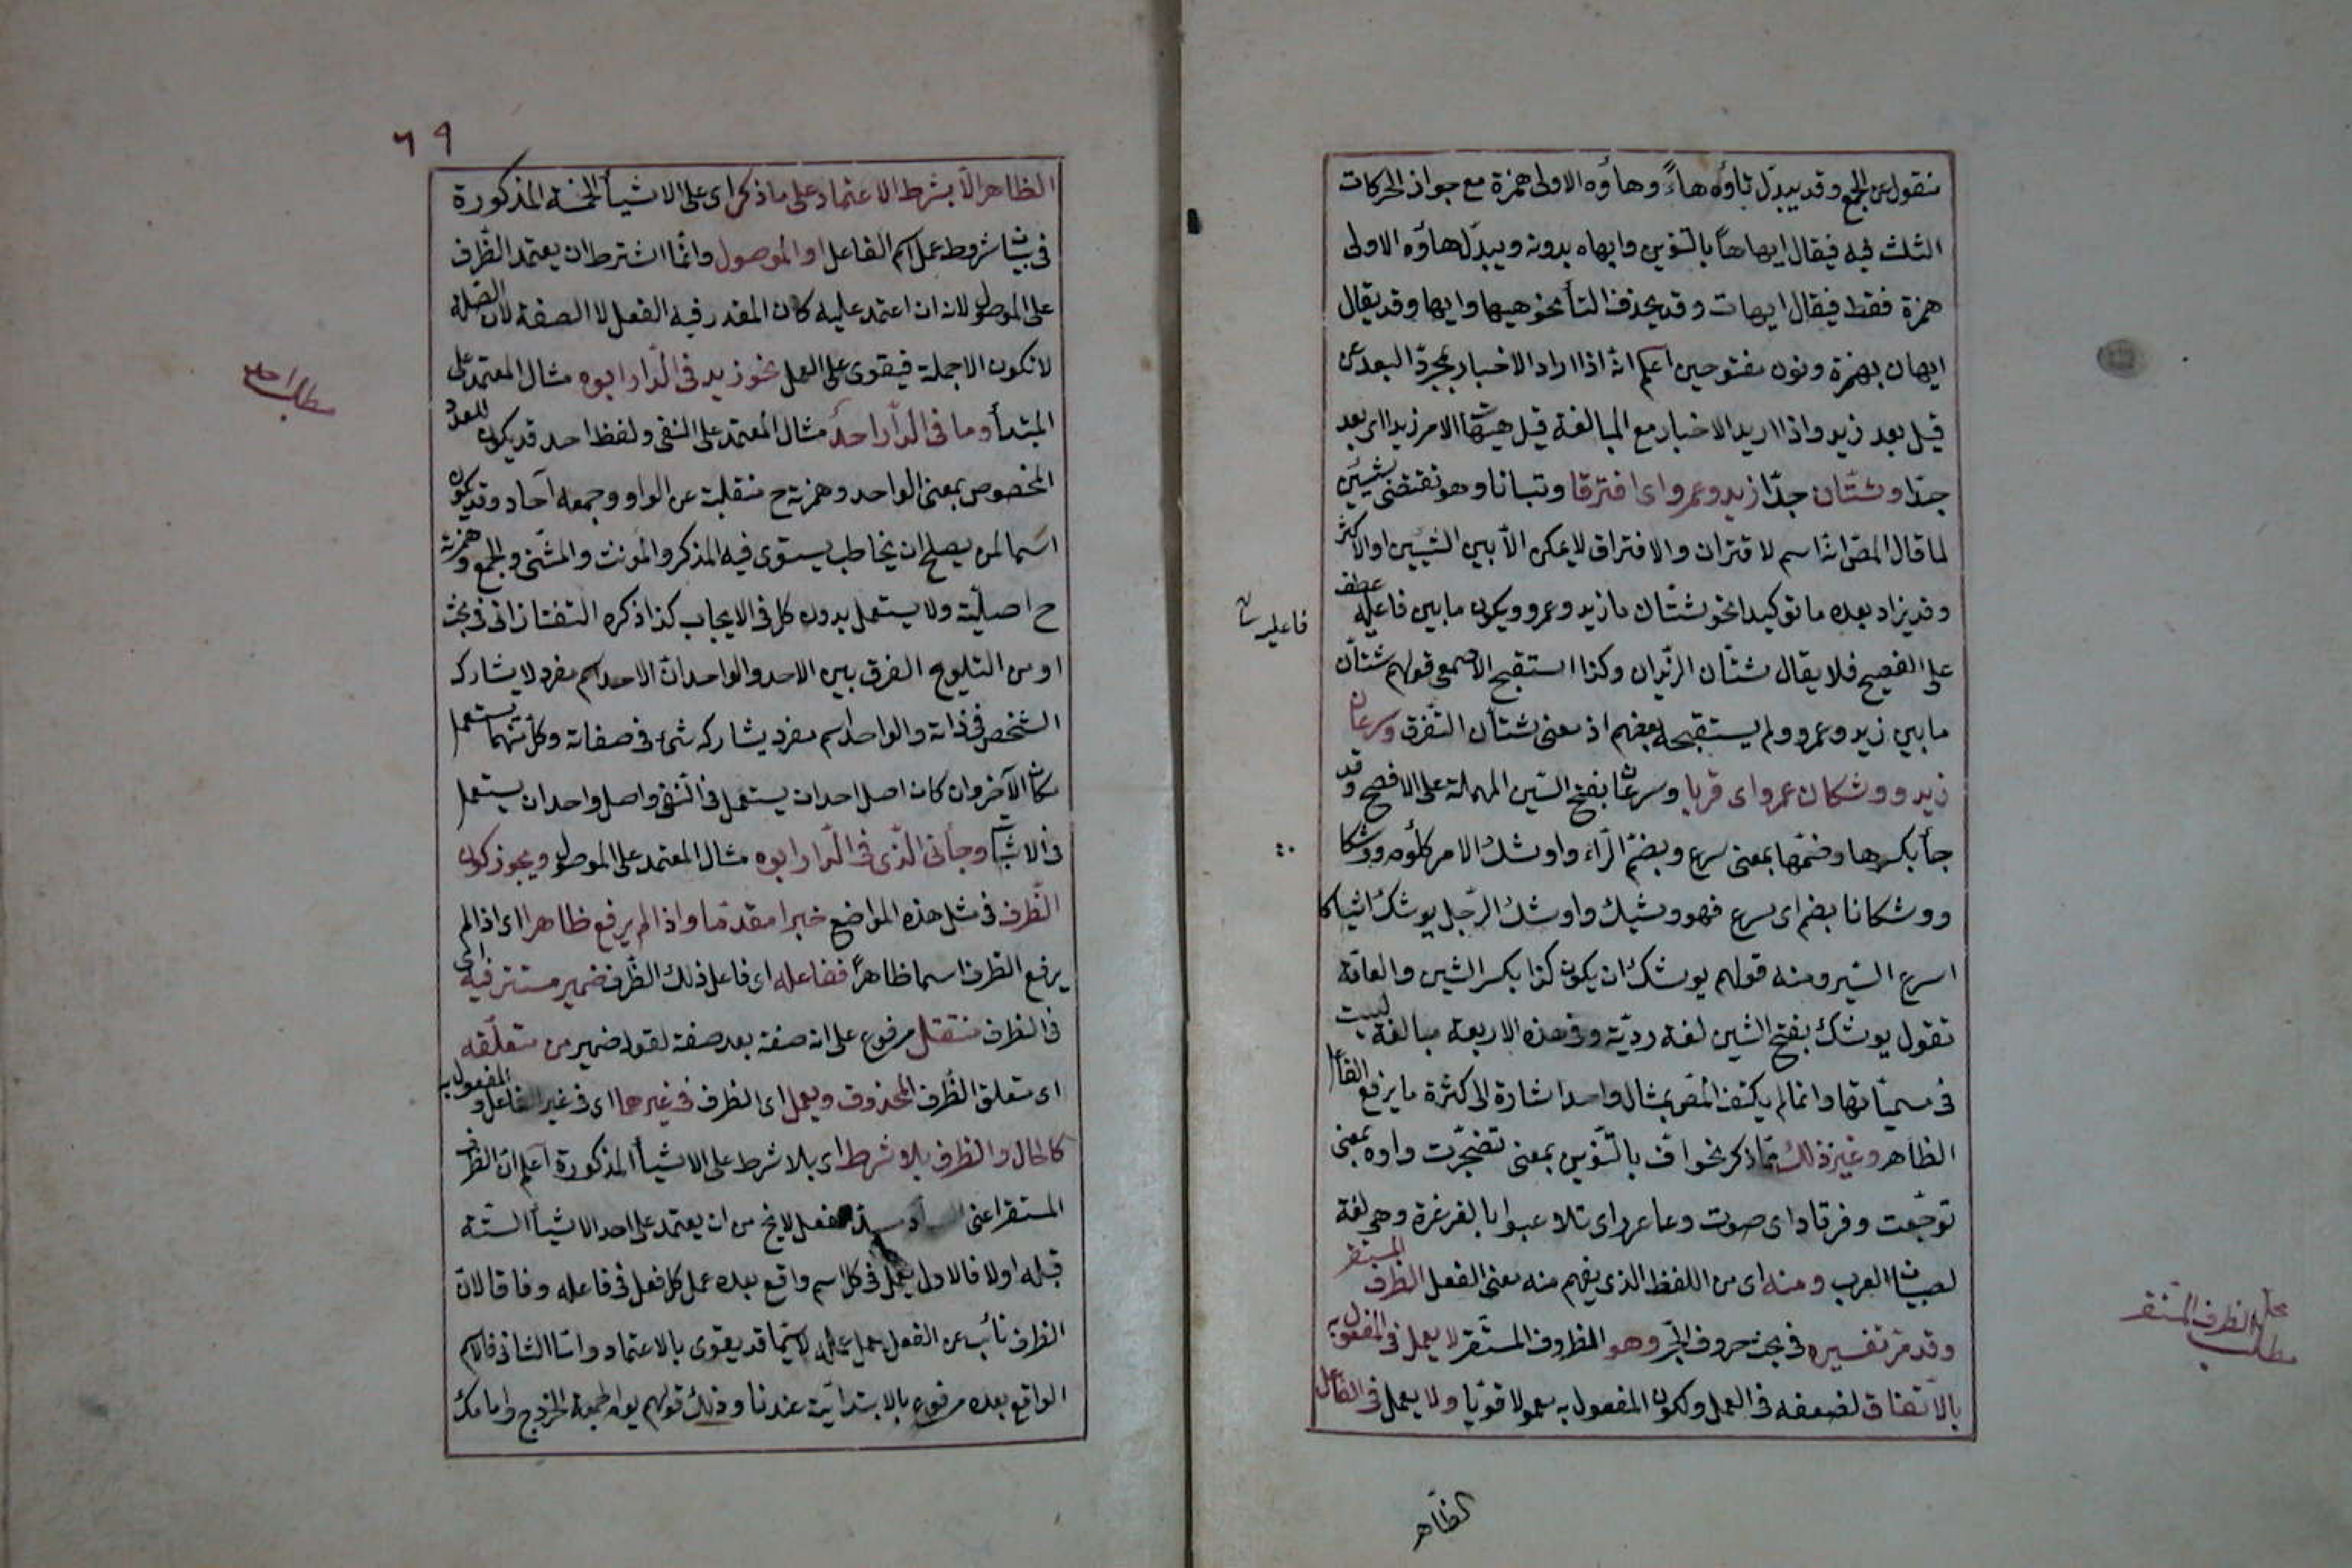 منقول عن الجمع وقد يبدّل تاؤه هاءً وهاؤه الاولى همزة مع جواز الحركات
الثلث فيه فيقال ايهاهاً بالتنوين وايهاه بدونه ويبدّل هاؤه الاولى
همزة فقط فيقال ايهات وقد يحذف التأ نحو هيها وايها وقد يقال
ايهان بهمزة ونون مفتوحين اعلم انه اذا اراد الاخبار بمجرّد البعد عن
قيل بعد زيد واذا اريد الاخبار مع المبالغة قيل هيهات الامر زيد اى بعد
جدّا وشتّان جدّا زيد وعمرو اى افترقا وتباينا وهو تقتضى شيئين
لما قال المصّ انه اسم لافتراق والافتراق لا يمكن الاّ بين الشيئين او الاكثر
وقد يزاد بعده ما توكيدا نحو شتّان ما زيد وعمرو ويكون ما بين فاعليه عطف
على الفصيح فلا يقال شتّان الزيدان وكذا استقبح الاصمعى قولهم شتّان
ما بين زيد وعمرو ولم يستقبحه بعضهم اذ معنى شتّان التفرق وسرعان
زيد ووشكان عمرو اى قربا وسرعان بفتح السّين المهملة على الافصح وقد
جأ بكسرها وضمّها بمعنى سرع وبضمّ الرّاء واوشك الامر كلؤم ووشكا
ووشكانا بضم اى سرع فهو وشيك واوشك الرّجل يوشك ايشاكا
اسرع السّير ومنه قولهم يوشك ان يكون كذا بكسر الشين والعامّة
تقول يوشك بفتح الشين لغة رديّة وفى هذه الاربعة مبالغة ليست
فى مسمّياتها وانما لم يكتف المصّ بمثال واحد اشارة الى كثرة ما يرفع الفاعل
الظاهر وغير ذلك ممّا ذكر نحو افّ بالتّنوين بمعنى تضجّرت واوه بمعنى
توجّعت وقرقار اى صوت وعرعار اى تلاعبوا بالعرعرة وهى لعبة
لصبيان العرب ومنه اى من اللفظ الذى يفهم منه معنى الفعل الظرف المستقر
وقد مرّ تفسيره فى بحث حروف الجرّ وهو الظروف المستقر لا يعمل فى المفعول به
بالاتّفاق لضعفه فى العمل ولكون المفعول به معمولا قويّا ولا يعمل فى الفاعل
فاعليه ن
عمل الظرف المستقر
مطلب
الظاهر
٦٩
الظاهر الاّ بشرط الاعتماد على ما ذكر اى على الاشيأ الخمسة المذكورة
فى بيان شروط عمل اسم الفاعل او الموصول وانّما اشترط ان يعتمد الظّرف
على الموصول لانه ان اعتمد عليه كان المقدر فيه الفعل لا الصفة لان الصلة
لا تكون الا جملة فيقوى على العمل نحو زيد فى الدّار ابوه مثال المعتمد على
المبتدأ وما فى الدّار احد مثال المعتمد على النفى ولفظ احد قد يكون للعدد
المخصوص بمعنى الواحد وهمزته ح منقلبة عن الواو وجمعه آحاد وقد يكون
اسما لمن يصلح ان يخاطب يستوى فيه المذكر والمونث والمثنى والجمع وهمزته
ح اصليّة ولا يستعمل بدون كل فى الايجاب كذا ذكره التفتازانى فى بحث
او من التلويح الفرق بين الاحد والواحد ان الاحد اسم مفرد لا يشاركه
الشخص فى ذاته والواحد اسم مفرد يشاركه شئ فى صفاته وكل منهما يستعمل
مكان الآخر وان كان اصل احد ان يستعمل فى النفى واصل واحد ان يستعمل
فى الاثبات وجأنى الّذى فى الدّار ابوه مثال المعتمد على الموصول ويجوز كون
الظّرف فى مثل هذه المواضع خبرا مقدّما واذا لم يرفع ظاهرا اى اذا لم
يرفع الظرف اسما ظاهراً ففاعله اى فاعل ذلك الظّرف ضمير مستتر فيه اى
فى الظرف منتقل مرفوع على انه صفة بعد صفة لقوله ضمير من متعلّقه
اى متعلق الظّرف المحذوف ويعمل اى الظرف فى غيرهما اى فى غير الفاعل والمفعول به
كالحال والظرف بلا شرط اى بلا شرط على الاشيأ المذكورة اعلم ان الظرف
المستقر اعنى الفعل لا يخ من ان يعتمد على احد الاشيأ الستّة
قبله اولا فالاول يعمل فى كل اسم واقع بعده عمل كل فعل فى فاعله وفاقا لان
الظرف نائب عن الفعل يعمل عمله لا سيّما قد يقوى بالاعتماد وامّا الثانى فالاسم
الواقع بعده مرفوع بالابتدائيّة عندنا وذلك قولهم يوم الجمعة الخروج وامامك
مطلب احد